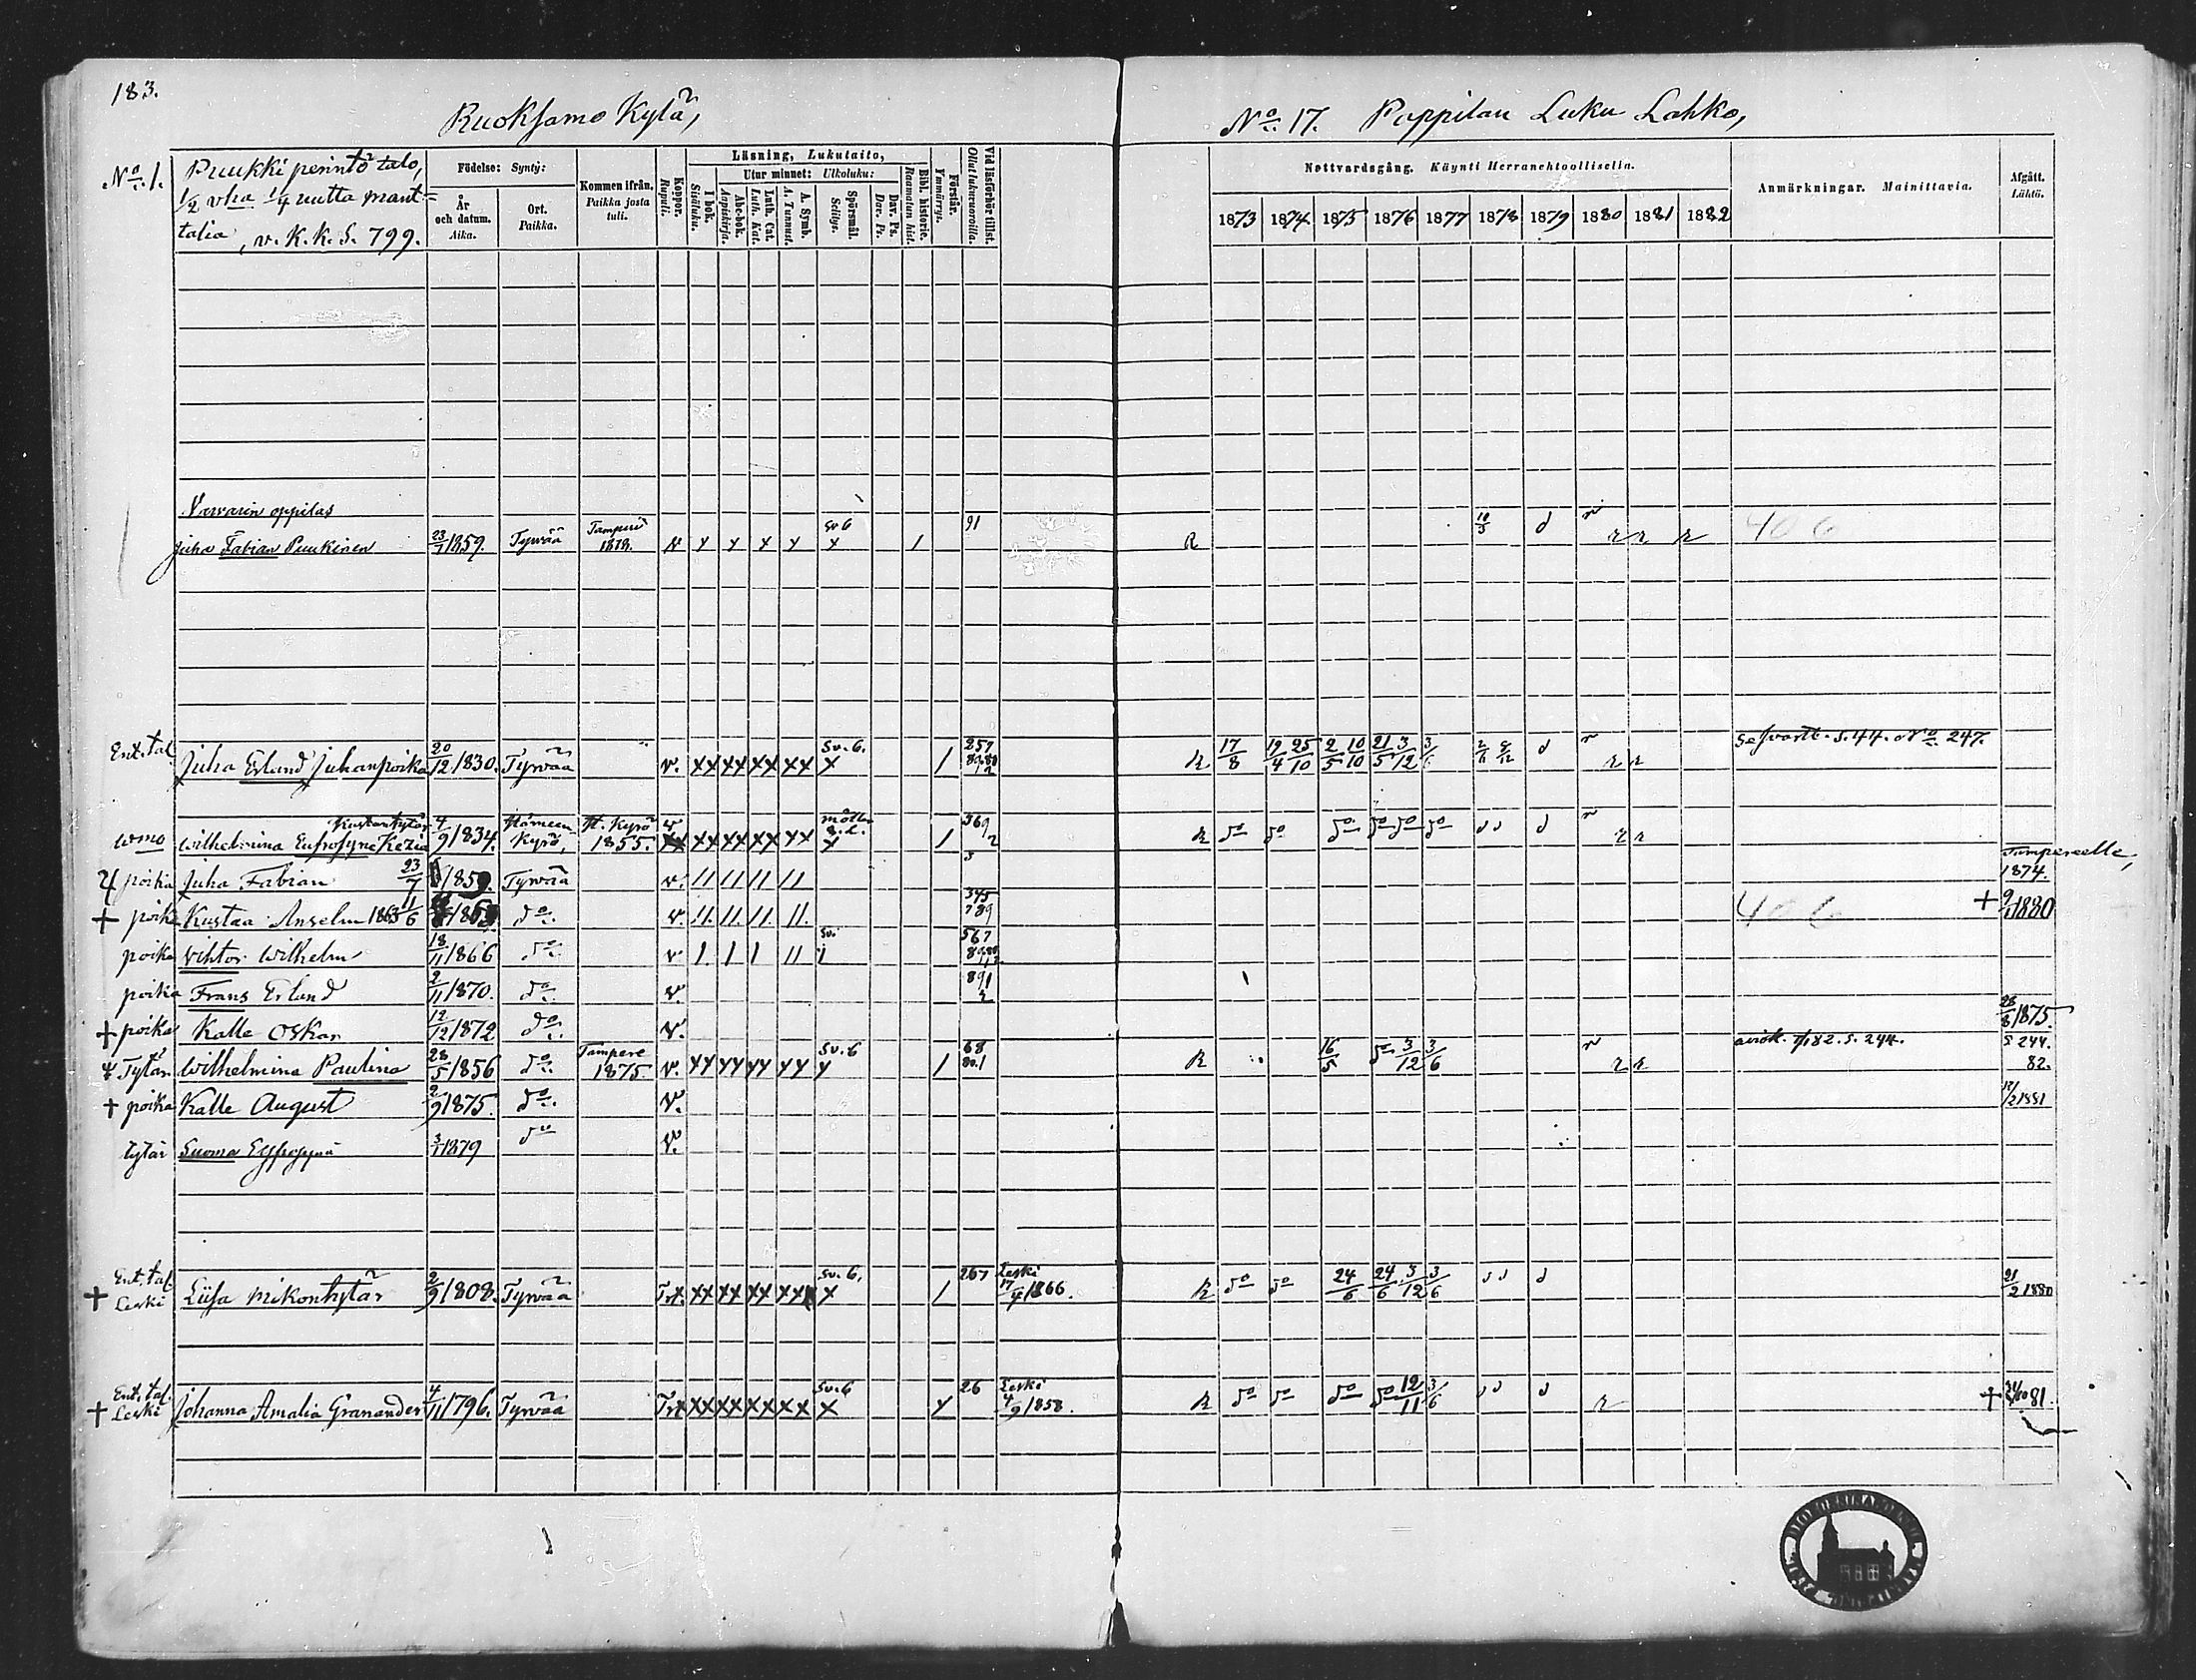 183.
Ruoksamo Kylä,
No. 17. Pappilan Luku Lahko,
No. 1. Puukki perintö talo,
1/2 vha 1/4 uutta mant=
talia, v. K. K. S. 799.
Födelse: Syntý:
År och datum. Aika.
Ort. Paikka.
Kommen ifrån. Paikka josta tuli.
Koppor. Rupuli.
Läsning, Lukutaito,
I bok. Sisäluku.
Utur minnet: Ulkoluku:
Abc-bok. Aapiskirja.
Luth. Cat. Luth. Kat.
A. Symb. A. Tunnust.
Spörsmål. Selitys.
Dav. Ps. Dav. Ps.
Bibl. historie. Raamatun hist.
Förstår. Ymmärrys.
Vid läsförhör tillst. Ollut lukuvuoroilla.
Nattvardsgång. Käynti Herranehtoollisella.
1873 1874 1875 1876 1877 1878 1879 1880 1881 1882
Anmärkningar. Mainittavia.
Afgått. Lähtö.
Varvarin oppilas
Juha Fabian Puukinen 23/7 1859. Tyrvää Tampere 1878. v x x x x sv 6 x / 91 R 10/3 d r r r r 406
Ent. tal. Juha Erland Juhanpoika 20/12 1830. Tyrvää v. xx xx xx xx sv. 6. x / R 17/8 19/4 25/10 2/5 10/10 21/5 3/12 3/6 d r r r s. 44. No. 247.
vmo Wilhelmina Eufrosyne Kezia Kustantytär 4/9 1834. Hämeen Kyrö, H. Kyrö 1855. v xx xx xx xx x / 369/2 R do do do do do do d r r r
poika Juha Fabian 23/7 1859. Tyrvää v. 11 11 11 11 3 Tampereelle, 1874.
+ poika Kustaa Anselm 1863 11/6 do. v. 11. 11. 11. 11. 345 789 406 + 9/11 1880
poika Vihtor Wilhelm 18/11 1866 do. v 1 1 1 11 sv. 567
poika Frans Erland 2/11 1870. do. v. 891 2
+ poika Kalle Oskar 12/12 1872 do. v. 28/8 1875.
Tytär Wilhelmina Paulina 28/5 1856 do. Tampere 1875. v. xx xx xx xx sv. 6 x / 68 80.1 R 16/5 do 3/12 3/6 r r r aviok. 82. s. 244. s 244. 82.
+ poika Kalle August 2/9 1875. do. v. 17/2 1881
tytär Suoma Effrosyna 3/1 1879 do v.
+ Ent. tal. Leski Liisa Mikontytär 2/9 1808. Tyrvää xx xx xx xx sv. 6. x / 267 Leski 17/4 1866. R do do 24/6 24/6 3/12 3/6 d 21/2 1880
+ Ent. tal. Leski Johanna Amalia Granander 4/11 1796. Tyrvää xx xx xx xx sv. 6 x 26 Leski 4/9 1858. R do do do do 12/11 3/6 d r + 81.